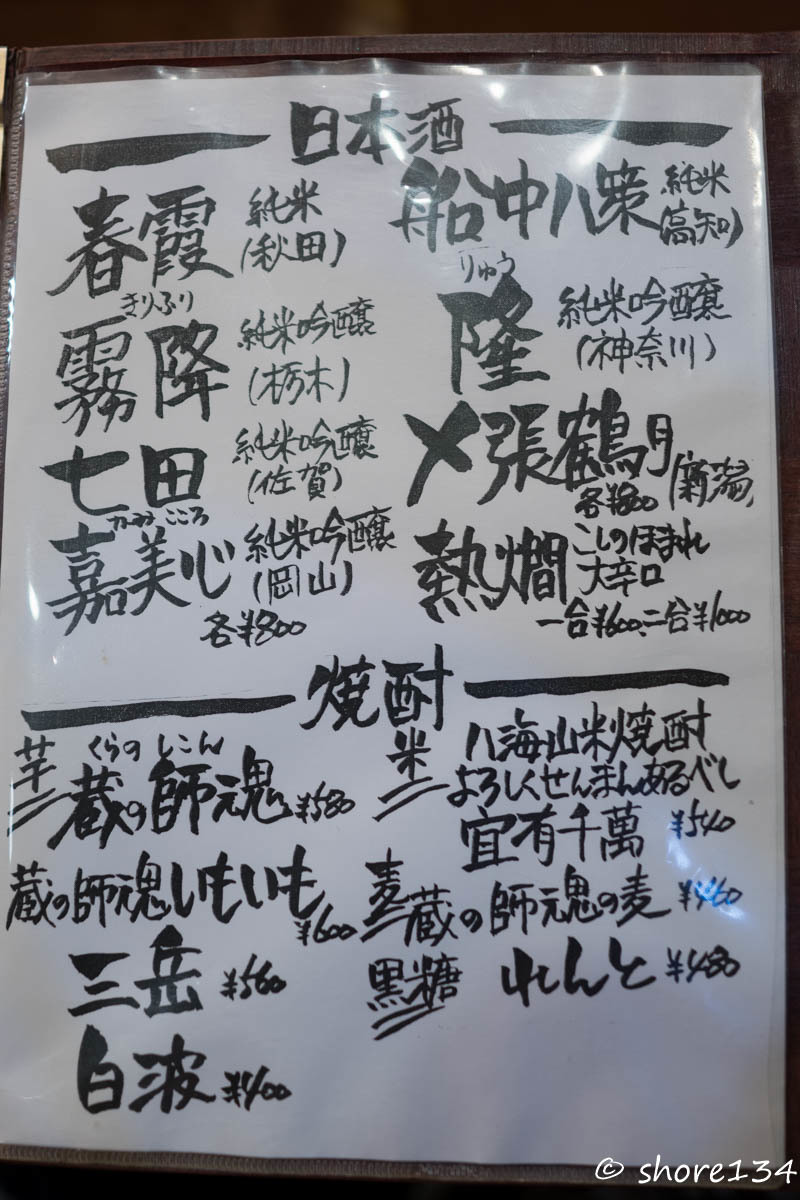 日本酒
春霞 純米
(秋田)
きりふり
霧降 純米吟醸
(栃木)
七田 純米吟醸
(佐賀)
かみこころ
嘉美心 純米吟醸
(岡山)
各¥800
船中八策 純米
(高知)
りゅう
隆 純米吟醸
(神奈川)
〆張鶴 月
(新潟)
各¥800
熱燗 こしのほまれ
大辛口
一合¥600、二合¥1000
焼酎
芋
くらの しこん
蔵の師魂 ¥580
蔵の師魂いもいも
¥600
三岳 ¥560
白波 ¥400
米
八海山米焼酎
よろしくせんまんあるべし
宜有千萬 ¥540
麦
蔵の師魂の麦 ¥460
黒糖 れんと ¥480
© shore134